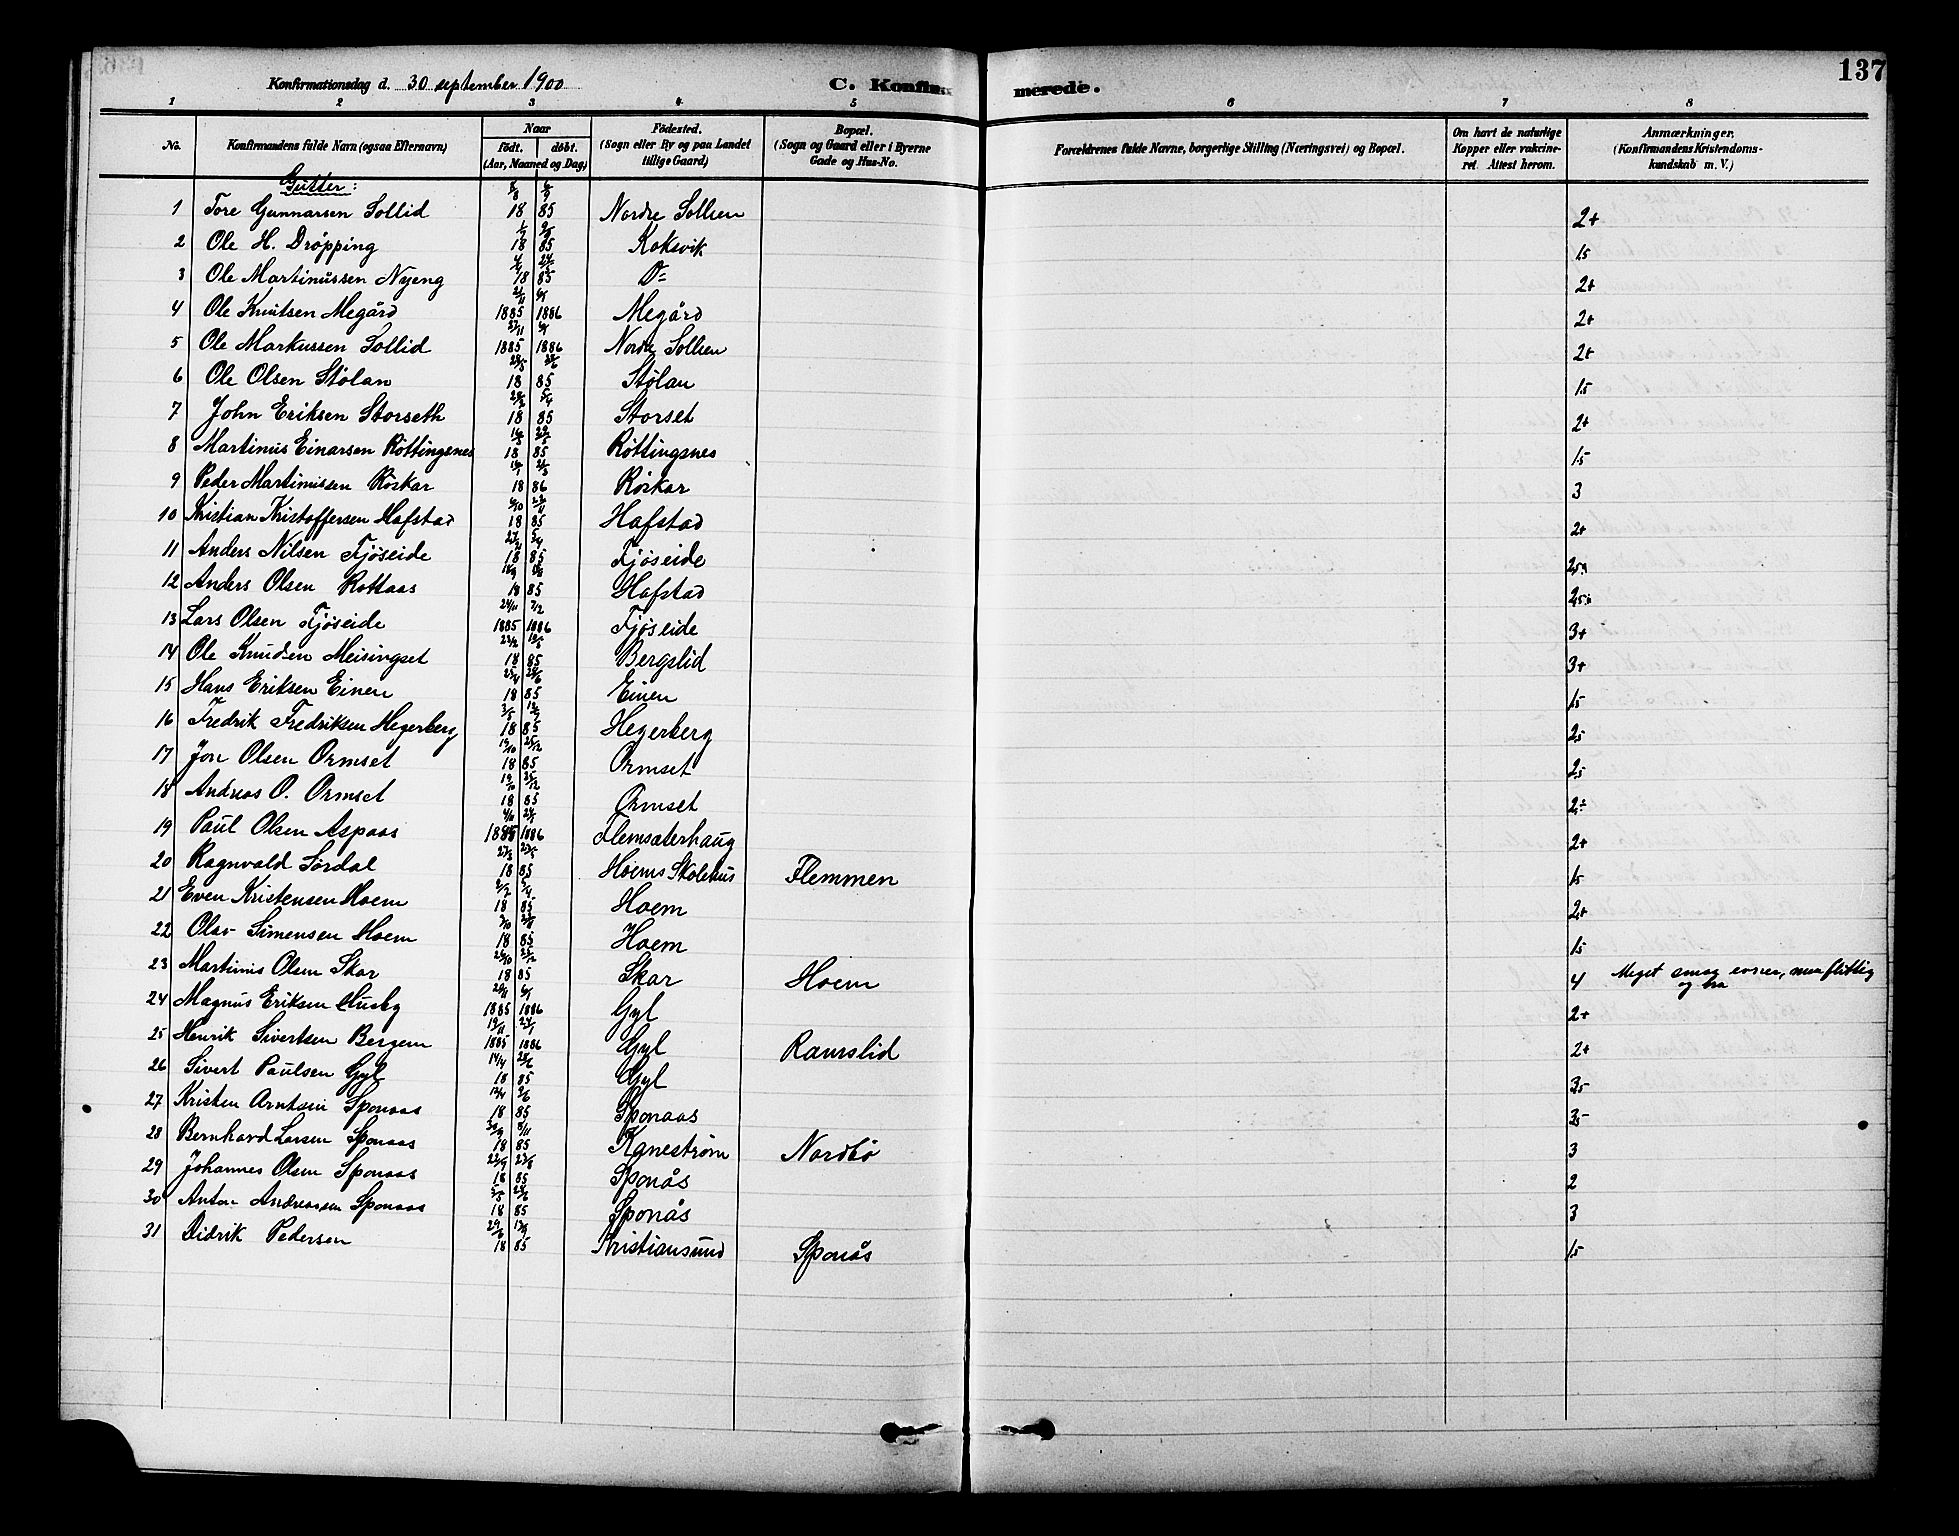 137
Konfirmationsdag d. 30 september 1900
C. Konfirmerede.
1 2 3 4 5 6 7 8
No.
Konfirmandens fulde Navn (ogsaa Efternavn)
Naar
født. døbt.
(Aar, Maaned og Dag)
Fødested.
(Sogn eller By og paa Landet
tillige Gaard)
Bopæl.
(Sogn og Gaard eller i Byerne
Gade og Hus-No.
Forældrenes fulde Navne, borgerlige Stilling (Næringsvei) og Bopæl.
Om havt de naturlige
Kopper eller vakcine-
ret. Attest herom.
Anmærkninger.
(Konfirmandens Kristendoms-
kundskab m. V.)
Gutter:
1 Tore Gunnarsen Sollid 18 85 Nordre Sollien 2+
2 Ole H. Drøpping 18 85 Koksvik 15
3 Ole Martinussen Nyeng 18 85 Do 2+
4 Ole Knutsen Megård 1885 1886 Megård 2+
5 Ole Markussen Sollid 1885 1886 Nordre Sollien 2+
6 Ole Olsen Stølan 18 85 Stølan 15
7 John Eriksen Storseth 18 85 Storset 2+
8 Martinus Einarsen Røttingsnes 18 85 Røttingsnes 15
9 Peder Martinussen Røskar 18 86 Røskar 3
10 Kristian Kristoffersen Hafstad 18 85 Hafstad 2+
11 Anders Nilsen Tjøseide 18 85 Tjøseide
12 Anders Olsen Rottaas 18 85 Hafstad
13 Lars Olsen Tjøseide 1885 1886 Tjøseide 3+
14 Ole Knudsen Meisingset 18 85 Bergslid 3+
15 Hans Eriksen Einen 18 85 Einen 15
16 Fredrik Fredriksen Hegerberg 18 85 Hegerberg 25
17 Jon Olsen Ormset 18 85 Ormset 25
18 Andreas O. Ormset 18 85 Ormset
19 Paul Olsen Aspaas 1885 1886 Flemsæterhaug 2+
20 Ragnvald Sørdal 18 85 Hoems Skolehus Flemmen 15
21 Even Kristensen Hoem 18 85 Hoem 2+
22 Olav Simensen Hoem 18 85 Hoem 15
23 Martinus Olsen Skar 18 85 Skar Hoem 4 Meget smaa evner, men flittig
og bra
24 Magnus Eriksen Husby 1885 1886 Gyl 2+
25 Henrik Sivertsen Bergem 1885 1886 Gyl Ramslid 2+
26 Sivert Paulsen Gyl 18 85 Gyl 35
27 Kristen Arntsen Sponaas 18 85 Sponaas 35
28 Bernhard Larsen Sponaas 18 85 Kanestrøm Nordbø 3
29 Johannes Olsen Sponaas 18 85 Sponås 2
30 Anton Andreassen Sponaas 18 85 Sponås 3
31 Didrik Pedersen 18 85 Kristiansund Sponås 15